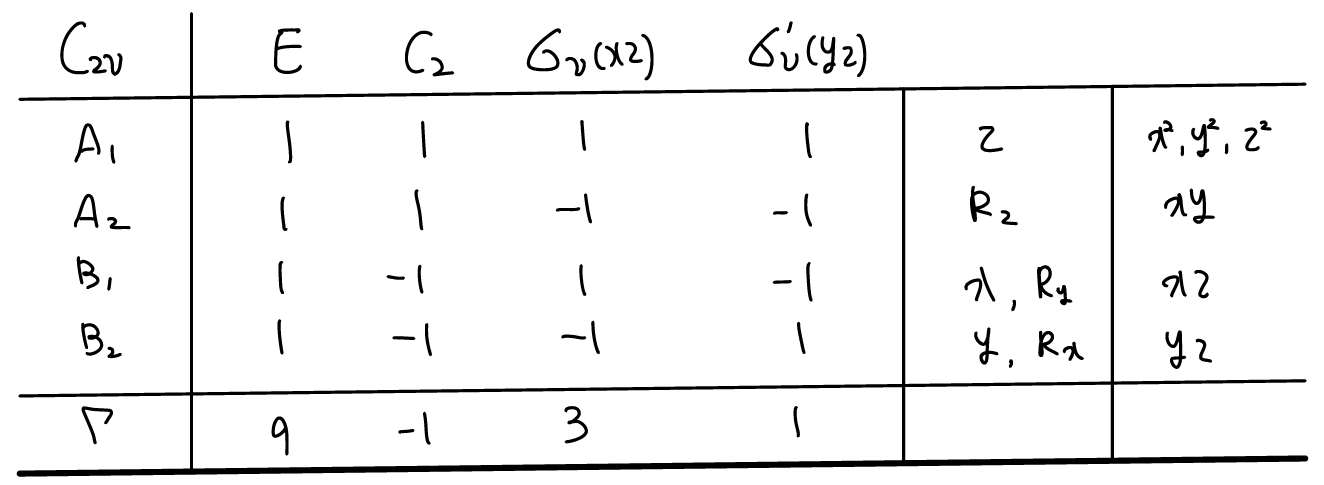 C₂ᵥ E C₂ σᵥ(xz) σᵥ′(yz)
A₁ 1 1 1 1 z x², y², z²
A₂ 1 1 -1 -1 R_z xy
B₁ 1 -1 1 -1 x, R_y xz
B₂ 1 -1 -1 1 y, Rₓ yz
Γ 9 -1 3 1